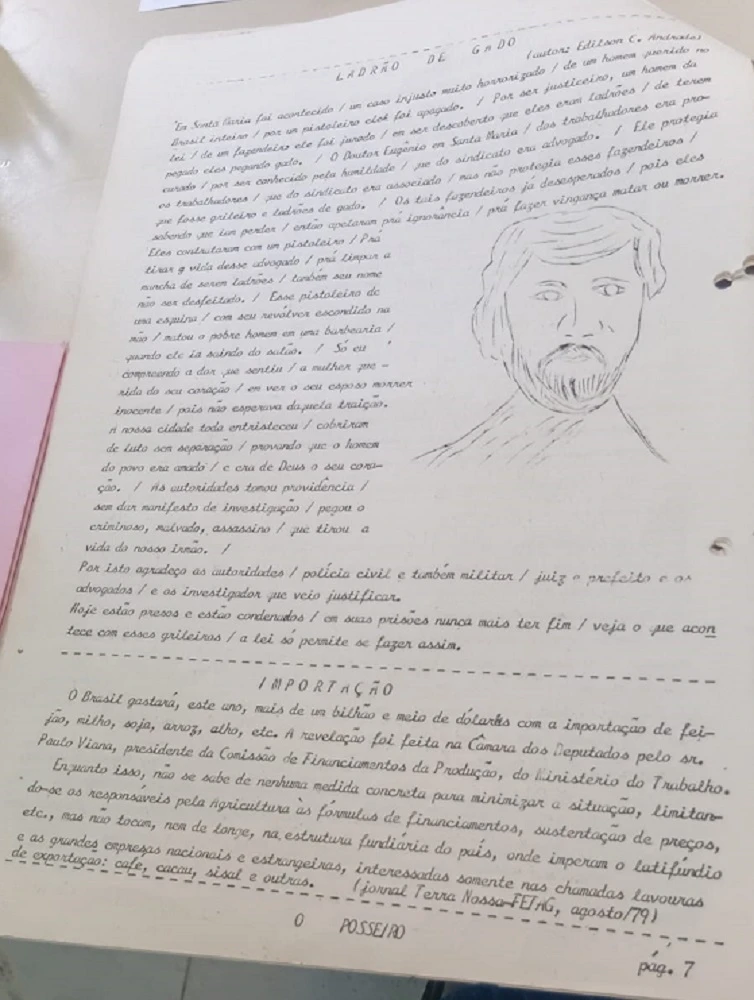 LADRÃO DE GADO
(autor: Edilson C. Andrade)
"Em Santa Maria foi acontecido / um caso injusto muito horrorizado / de um homem querido no
Brasil inteiro / por um pistoleiro foi apagado. / Por ser justiceiro, um homem da
lei / de um fazendeiro ele foi jurado / em ser descoberto que eles eram ladrões / de terem
pegado eles pegando gado. / O Doutor Eugênio em Santa Maria / dos trabalhadores era pro-
curado / por ser conhecido pela humildade / que do sindicato era advogado. / Ele protegia
os trabalhadores / que do sindicato era associado / mas não protegia esses fazendeiros /
que fosse grileiro e ladrões de gado. / Os tais fazendeiros já desesperados / pois eles
sabendo que iam perder / então apelaram prá ignorância / prá fazer vingança matar ou morrer.
Eles contrataram com um pistoleiro / Prá
tirar a vida desse advogado / prá limpar a
mancha de serem ladrões / também seu nome
não ser desfeitado. / Esse pistoleiro de
uma esquina / com seu revólver escondido na
mão / matou o pobre homem em uma barbearia /
quando ele ia saindo do salão. / Só eu
compreendo a dor que sentiu / a mulher que-
rida do seu coração / em ver o seu esposo morrer
inocente / pois não esperava daquela traição.
A nossa cidade toda entristeceu / cobriram
de luto sem separação / provando que o homem
do povo era amado / e era de Deus o seu cora-
ção. / As autoridades tomou providência /
sem dar manifesto de investigação / pegou o
criminoso, malvado, assassino / que tirou a
vida do nosso irmão. /
Por isto agradeço as autoridades / polícia civil e também militar / juiz e prefeito e os
advogados / e os investigador que veio justificar.
Hoje estão presos e estão condenados / em suas prisões nunca mais ter fim / veja o que acon
tece com esses grileiros / a lei só permite se fazer assim.
IMPORTAÇÃO
O Brasil gastará, este ano, mais de um bilhão e meio de dólares com a importação de fei-
jão, milho, soja, arroz, alho, etc. A revelação foi feita na Câmara dos Deputados pelo sr.
Paulo Viana, presidente da Comissão de Financiamentos da Produção, do Ministério do Trabalho.
Enquanto isso, não se sabe de nenhuma medida concreta para minimizar a situação, limitan-
do-se os responsáveis pela Agricultura às fórmulas de financiamentos, sustentação de preços,
etc., mas não tocam, nem de longe, na estrutura fundiária do país, onde imperam o latifúndio
e as grandes empresas nacionais e estrangeiras, interessadas somente nas chamadas lavouras
de exportação: café, cacau, sisal e outras. (jornal Terra Nossa-FETAG, agosto/79)
O POSSEIRO
pág. 7